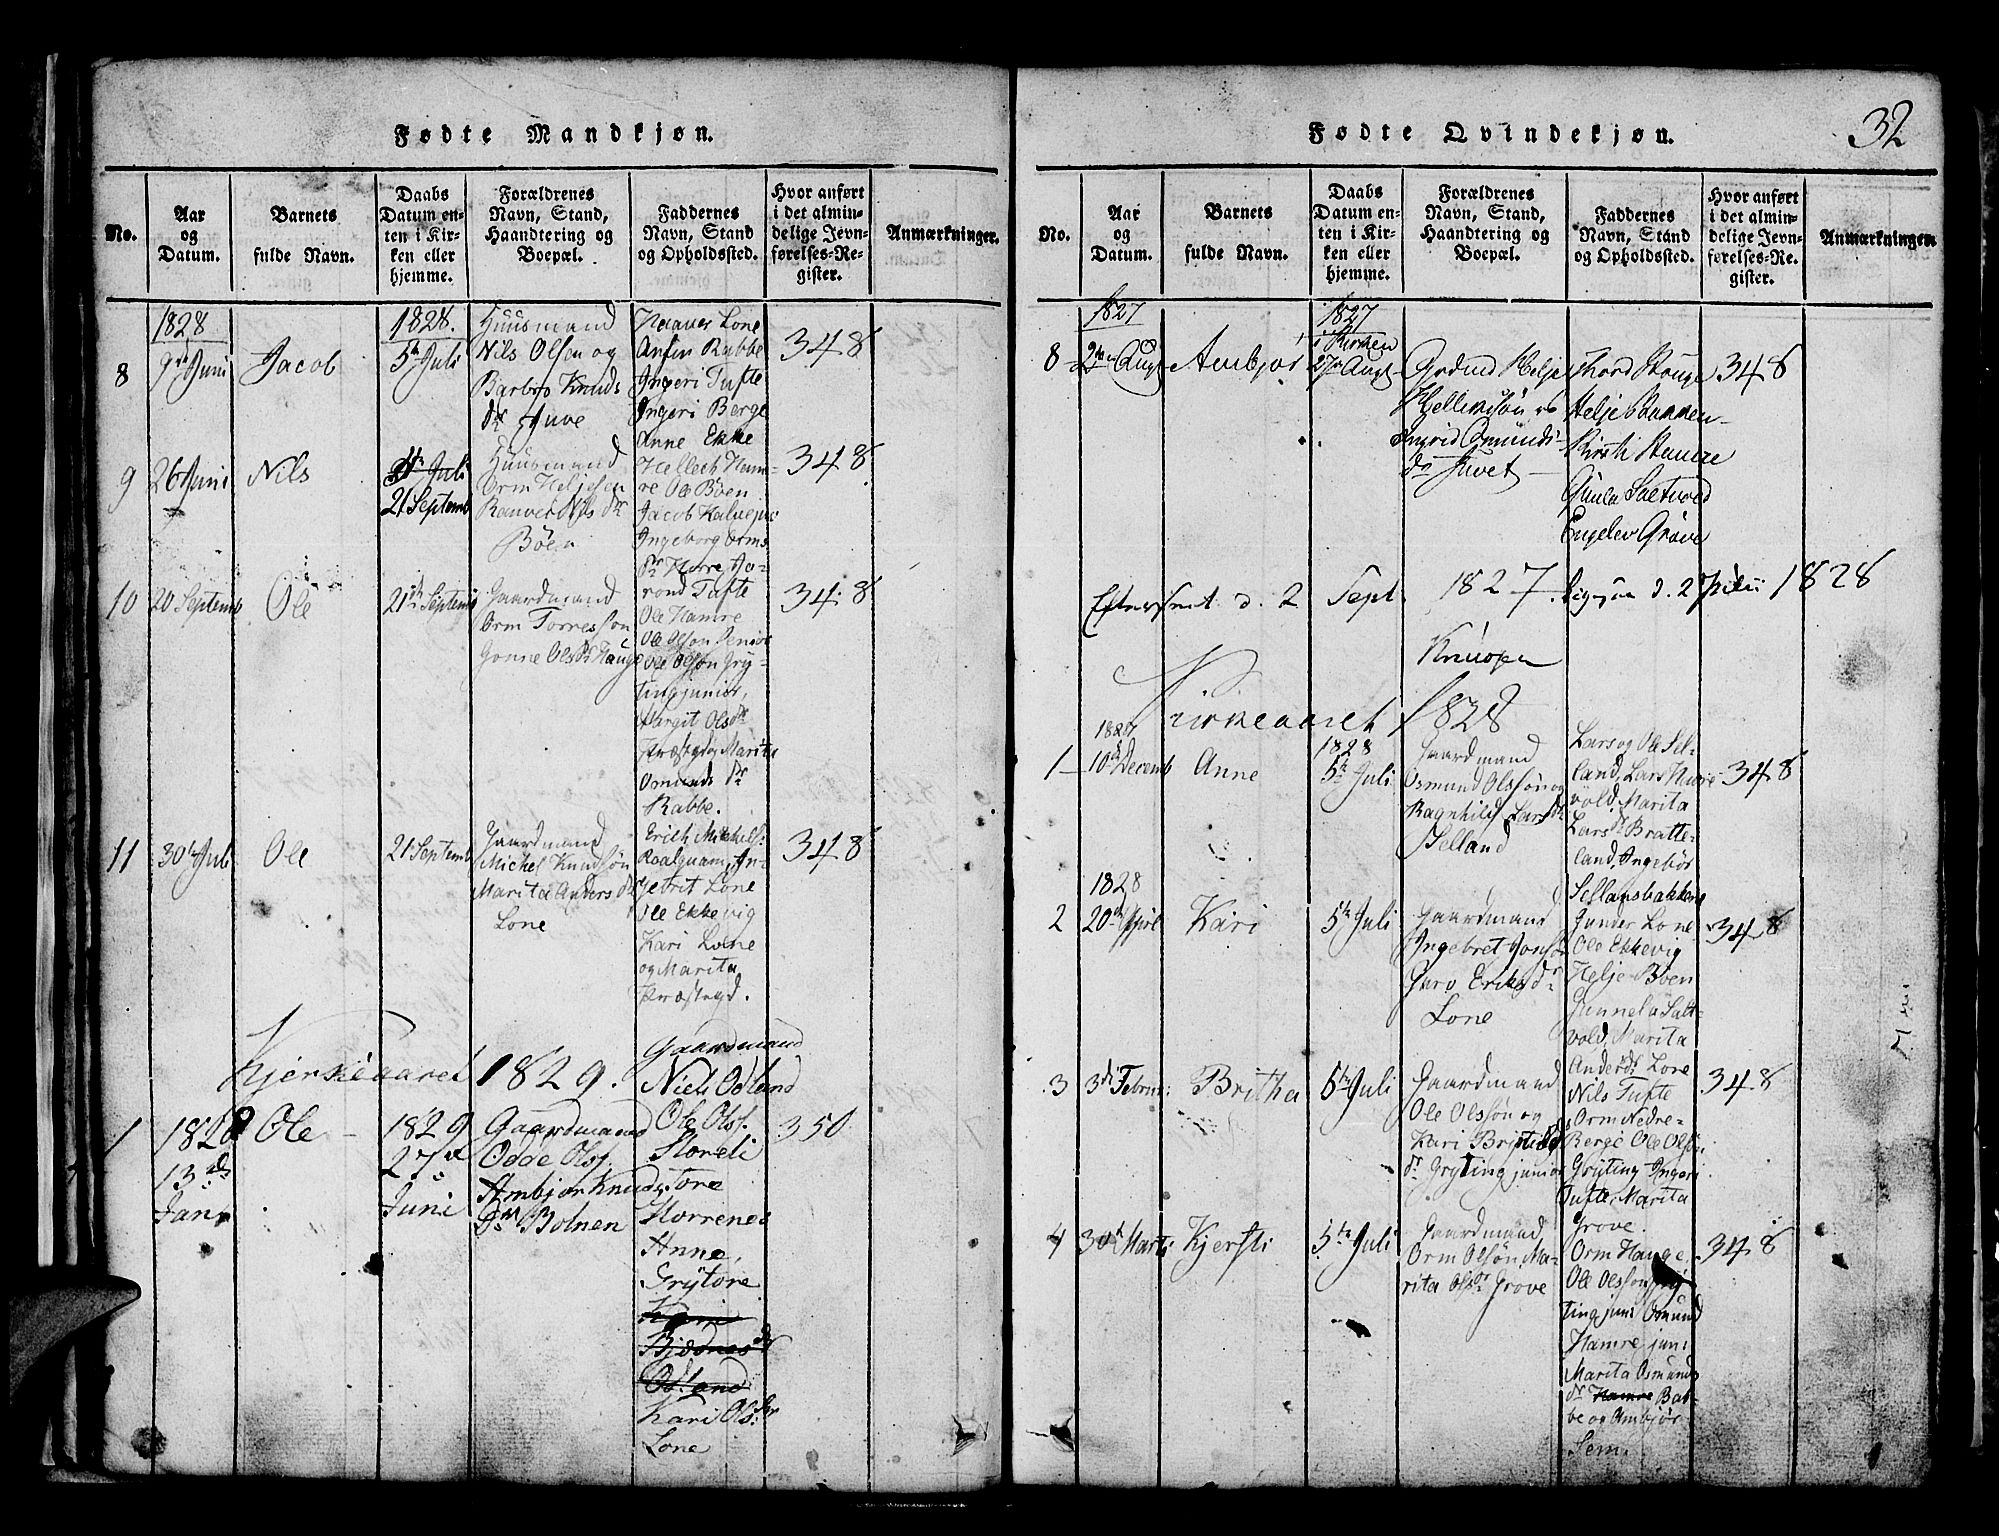 Fødte Mandkjøn.
No.
Aar
og
Datum.
Barnets
fulde Navn.
Daabs
Datum en-
ten i Kir-
ken eller
hjemme.
Forældrenes
Navn, Stand,
Haandtering og
Boepæl.
Faddernes
Navn, Stand
og Opholdssted.
Hvor anført
i det almin-
delige Jevn-
førelses-Re-
gister.
Anmærkninger.
8
1828
9de Juni
Jacob
1828.
5te Juli
Huusmand
Nils Olsen og
Barbro Knuds
dr Juve
Lone
Anfin Rabbe
Ingeri Tufte
Ingeri Berge
Anne Ekke
348
9
26 Juni
Nils
Juli
21 Septemb
Huusmand
Orm Heljesen
Nils dr
Böen
Hellech Ham-
re Ole Böen
Jacob
Ingeborg Orms
dr Horre
rond Tufte
348
10
20 Septemb
Ole
21de Septemb
Gaardmand
Orm Torresson
Gonne Ols dr Hauge
Ole Hamre
Ole Olson Senior
Ole Olson Gry-
ting junior,
Margit Olsdr
Præstegd Marita
Omunds dr
Rabbe.
348
11
30te Juli
Ole
21 Septemb
Gaardmand
Michel Knudsön
Marita Anders dr
Lone
Erich Mikkels:
Roalquam, In-
Lone
Ole Ekkevig
Kari Lone
og Marita
Præstegd.
348
Kjerkeaaret 1829.
1
1828
13de
Jan.
Ole
1829
27de
Juni
Gaardmand
Odde Olsf.
Ambjor Knuds
Dr Bolnen
Gaardmand
Niels Odland
Ole Olsf.
Storeli
Tore
Horrenes
Anne
Grytöre
Kari
Bjødnes dr
Odland
Kari Ols: dr
Lone
350
Fødte Qvindekjøn.
32
No.
Aar
og
Datum.
Barnets
fulde Navn.
Daabs
Datum en-
ten i Kir-
ken eller
hjemme.
Forældrenes
Navn, Stand,
Haandtering og
Boepæl.
Faddernes
Navn, Stand
og Opholdssted.
Hvor anført
i det almin-
delige Jevn-
førelses-Re-
gister.
Anmærkningen
8
1827
Augt
Ambjor
1827
i Kirken
27de Augt
Helje
Ingrid Omunds
dr Juvet
Thord Houge
Helje Bakken
Kirsti Hamre
Gunla Saltvold
Engelev Gröve
348
Efterseet d. 2 Sept. 1827. d. 2 Juli 1828
Knudsen
Kirkeaaret 1828
1
1827
10de Decemb
Anne
1828
5te Juli
Gaardmand
Osmund Olssön og
Ragnhild Lars dr
Selland
Lars og Ole Sel-
land, Lars
völd, Marita
Lars dr Bratte-
land, Ingebör
Sellansbakken
348
2
1828
20de April
Kari
5te Juli
Gaardmand
Ingebret Jonsön
Guro Eriks dr
Lone
Gunder Lone
Ole Ekkevig
Helje Böen
Gunnela Salt-
vold, Marita
Anders dr Lone
348
3
3de Febru:
Britha
5te Juli
Gaardmand
Ole Olssön og
Kari
dr Gryting junior
Nils Tufte
Orm Nedre-
Berge Ole Olsön
Gryting Ingeri
Tufte, Marita
Grove.
348
4
30te Marti
Kjersti
5te Juli
Gaardmand
Orm Olsön, Ma-
rita Olsdr Grove
Orm Hauge
Ole Olsson Gry
ting jun: Osmund
Hamre jun:
Marita Osmunds
dr Hamre Rab-
be og Ambjør
Sem.
348